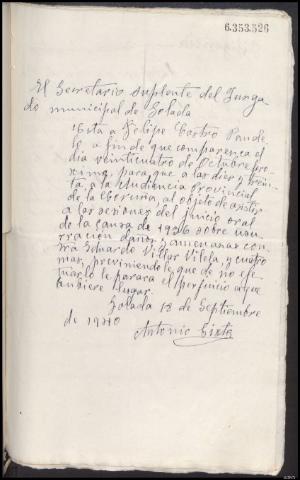 6.353.526
El Secretario suplente del Juzga
do municipal de Golada
Cita a Felipe Castro
a fin de que comparezca el
dia veinticuatro de Octubre pro
ximo, para que a las diez y trein
ta, a la Audiencia Provincial
de la Coruña, al objeto de asistir
a las sesiones del juicio oral
de la causa de 1936 sobre
daños y amenazas con
tra Eduardo Villar Vilela, y cuatro
mas, previniendole que de no efe
tuarlo le parará el perjuicio a que
hubiere lugar.
Golada 18 de Septiembre
de 1940
Antonio